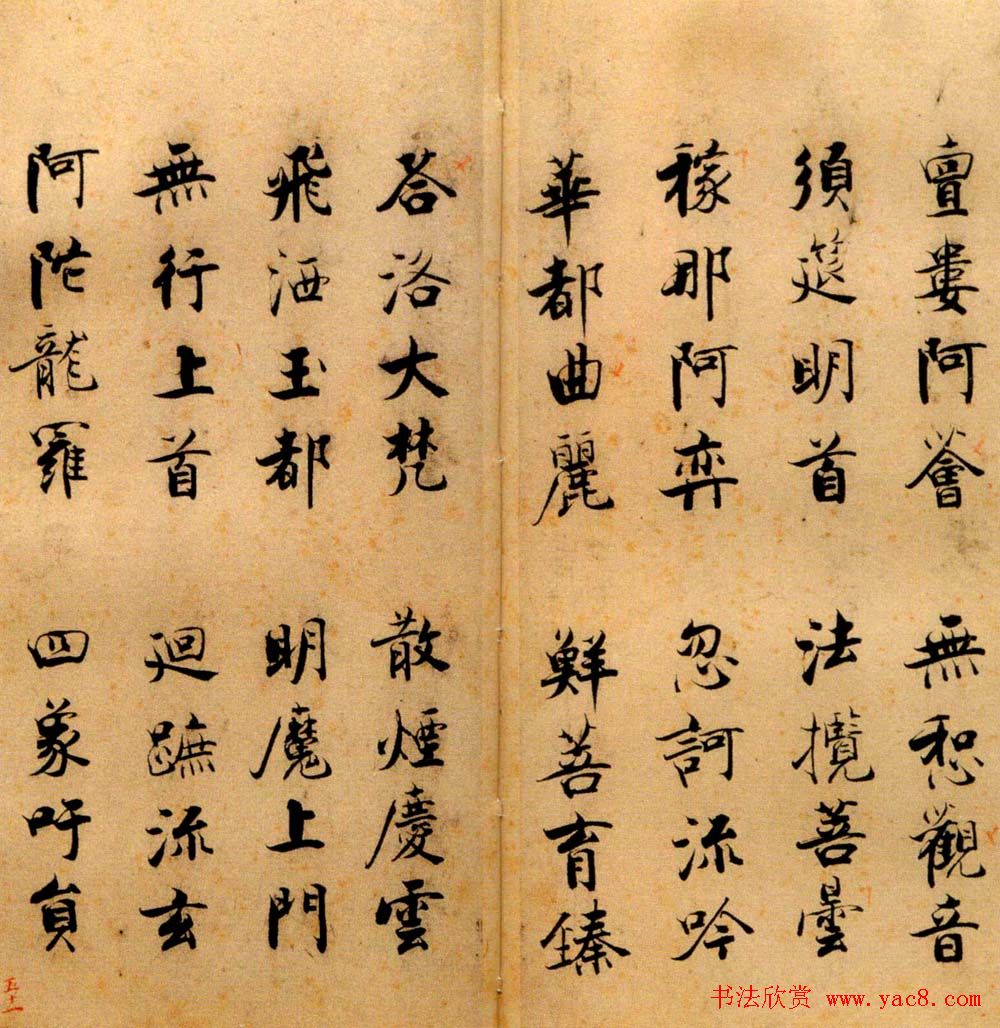 亶婁阿薈 無惒觀音
須筵明首 法攬菩曇
稼那阿弈 忽訶流吟
華都曲麗 鮮菩育臻
荅洛大梵 散煙慶雲
飛洒玉都 明魔上門
無行上首 迴蹠流玄
阿陀龍羅 四象吁員
五十一
书法欣赏 www.yac8.com